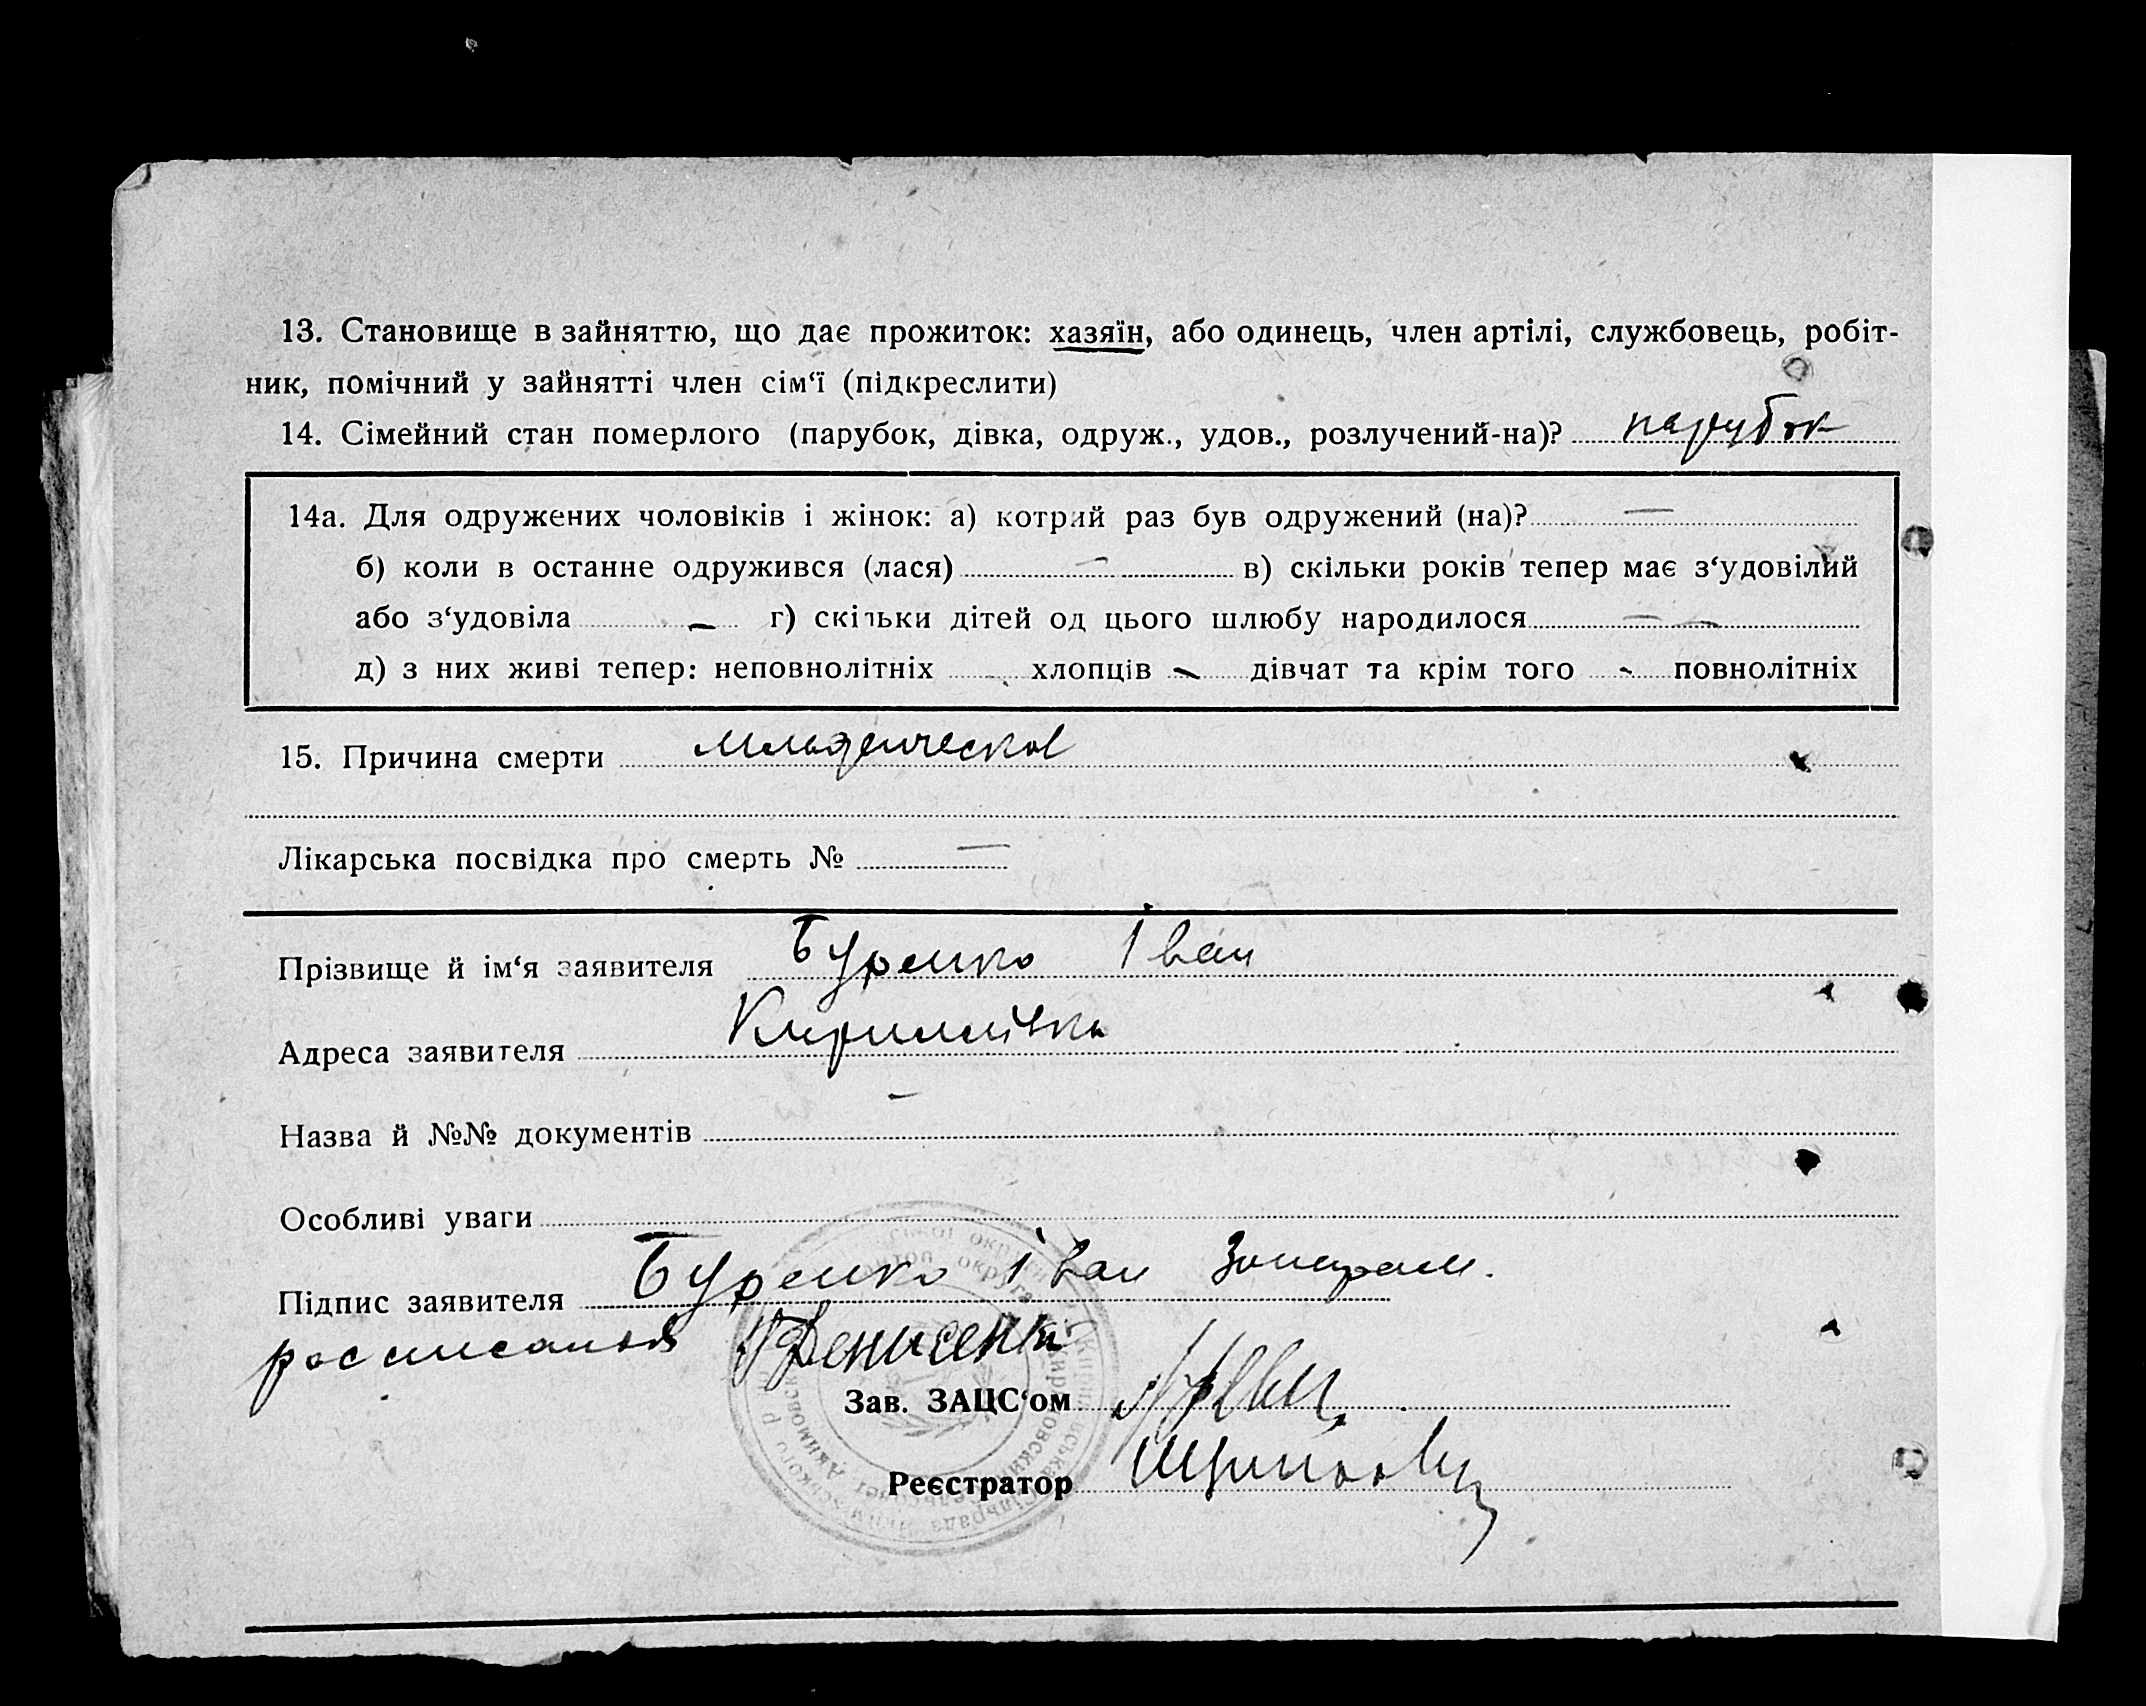 13. Становище в зайняттю, що дає прожиток: хазяїн, або одинець, член артілі, службовець, робіт-
ник, помічний у зайнятті член сім‘ї (підкреслити)
14. Сімейний стан померлого (парубок, дівка, одруж., удов., розлучений-на)? парубок
14а. Для одружених чоловіків і жінок: а) котрий раз був одружений (на)? —
б) коли в останне одружився (лася) — в) скільки років тепер має з‘удовілий
або з‘удовіла — г) скільки дітей од цього шлюбу народилося — —
д) з них живі тепер: неповнолітніх - хлопців - дівчат та крім того - повнолітніх
15. Причина смерти младенческая
Лікарська посвідка про смерть № —
Прізвище й ім‘я заявителя Буренко Іван
Адреса заявителя Кирилівка
Назва й №№ документів —
Особливі уваги
Підпис заявителя Буренко Іван
росписался Денисенко
Зав. ЗАЦС‘ом
Реєстратор